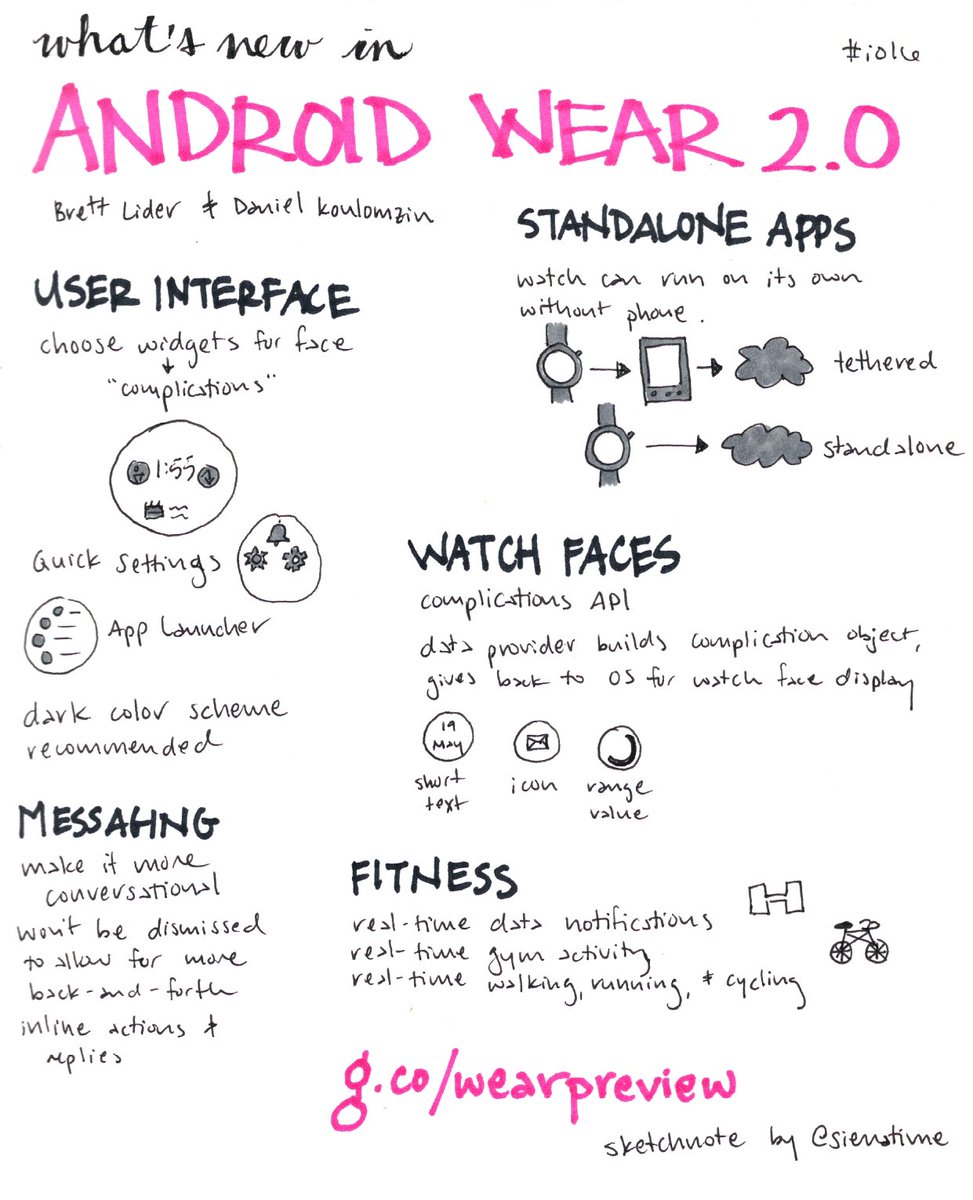 what's new in
#io16
ANDROID WEAR 2.0
Brett Lider & Daniel Koulomzin
USER INTERFACE
choose widgets for face
"complications"
1:55
Quick Settings
App Launcher
dark color scheme
recommended
MESSAGING
make it more
conversational
won't be dismissed
to allow for more
back-and-forth
inline actions &
replies
STANDALONE APPS
watch can run on its own
without phone.
tethered
standalone
WATCH FACES
complications API
data provider builds complication object,
gives back to OS for watch face display
19
May
short
text
icon
range
value
FITNESS
real-time data notifications
real-time gym activity
real-time walking, running, & cycling
g.co/wearpreview
sketchnote by @sienatime